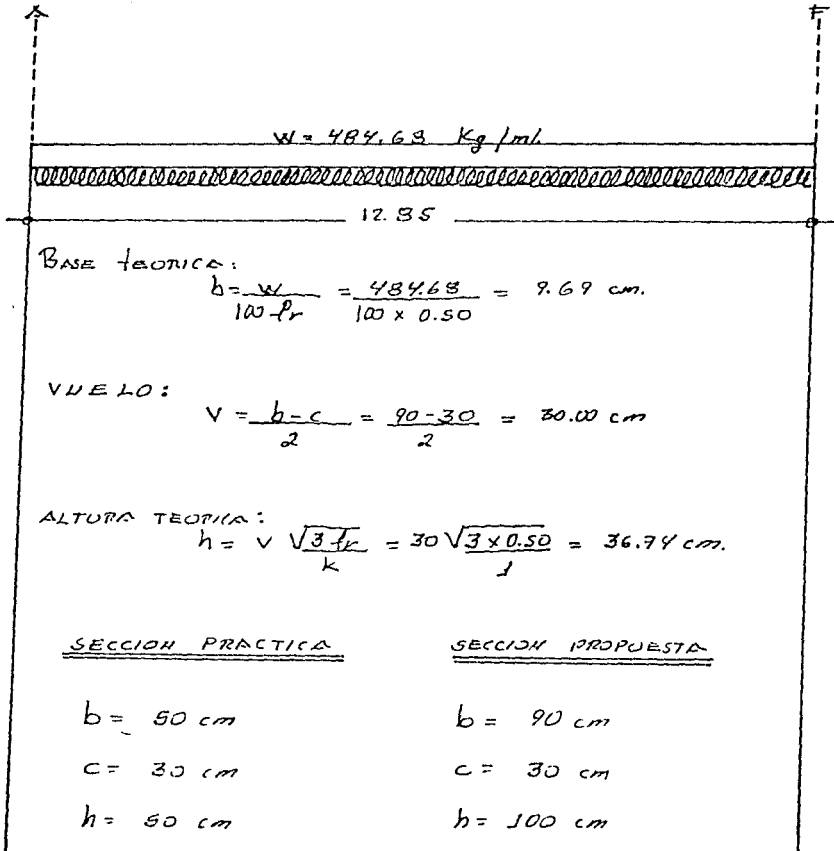 A F
W = 484.68 Kg/ml.
12.85
BASE TEORICA:
b = w / 100 fr = 484.68 / 100 x 0.50 = 9.69 cm.
VUELO:
V = b - c / 2 = 90 - 30 / 2 = 30.00 cm
ALTURA TEORICA:
h = v √3 fr / k = 30 √3 x 0.50 / 1 = 36.74 cm.
SECCION PRACTICA SECCION PROPUESTA
b = 50 cm b = 90 cm
c = 30 cm c = 30 cm
h = 50 cm h = 100 cm